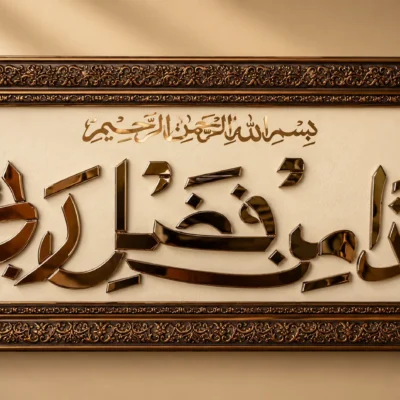 بسم الله الرحمن الرحيم
من فضل ربي